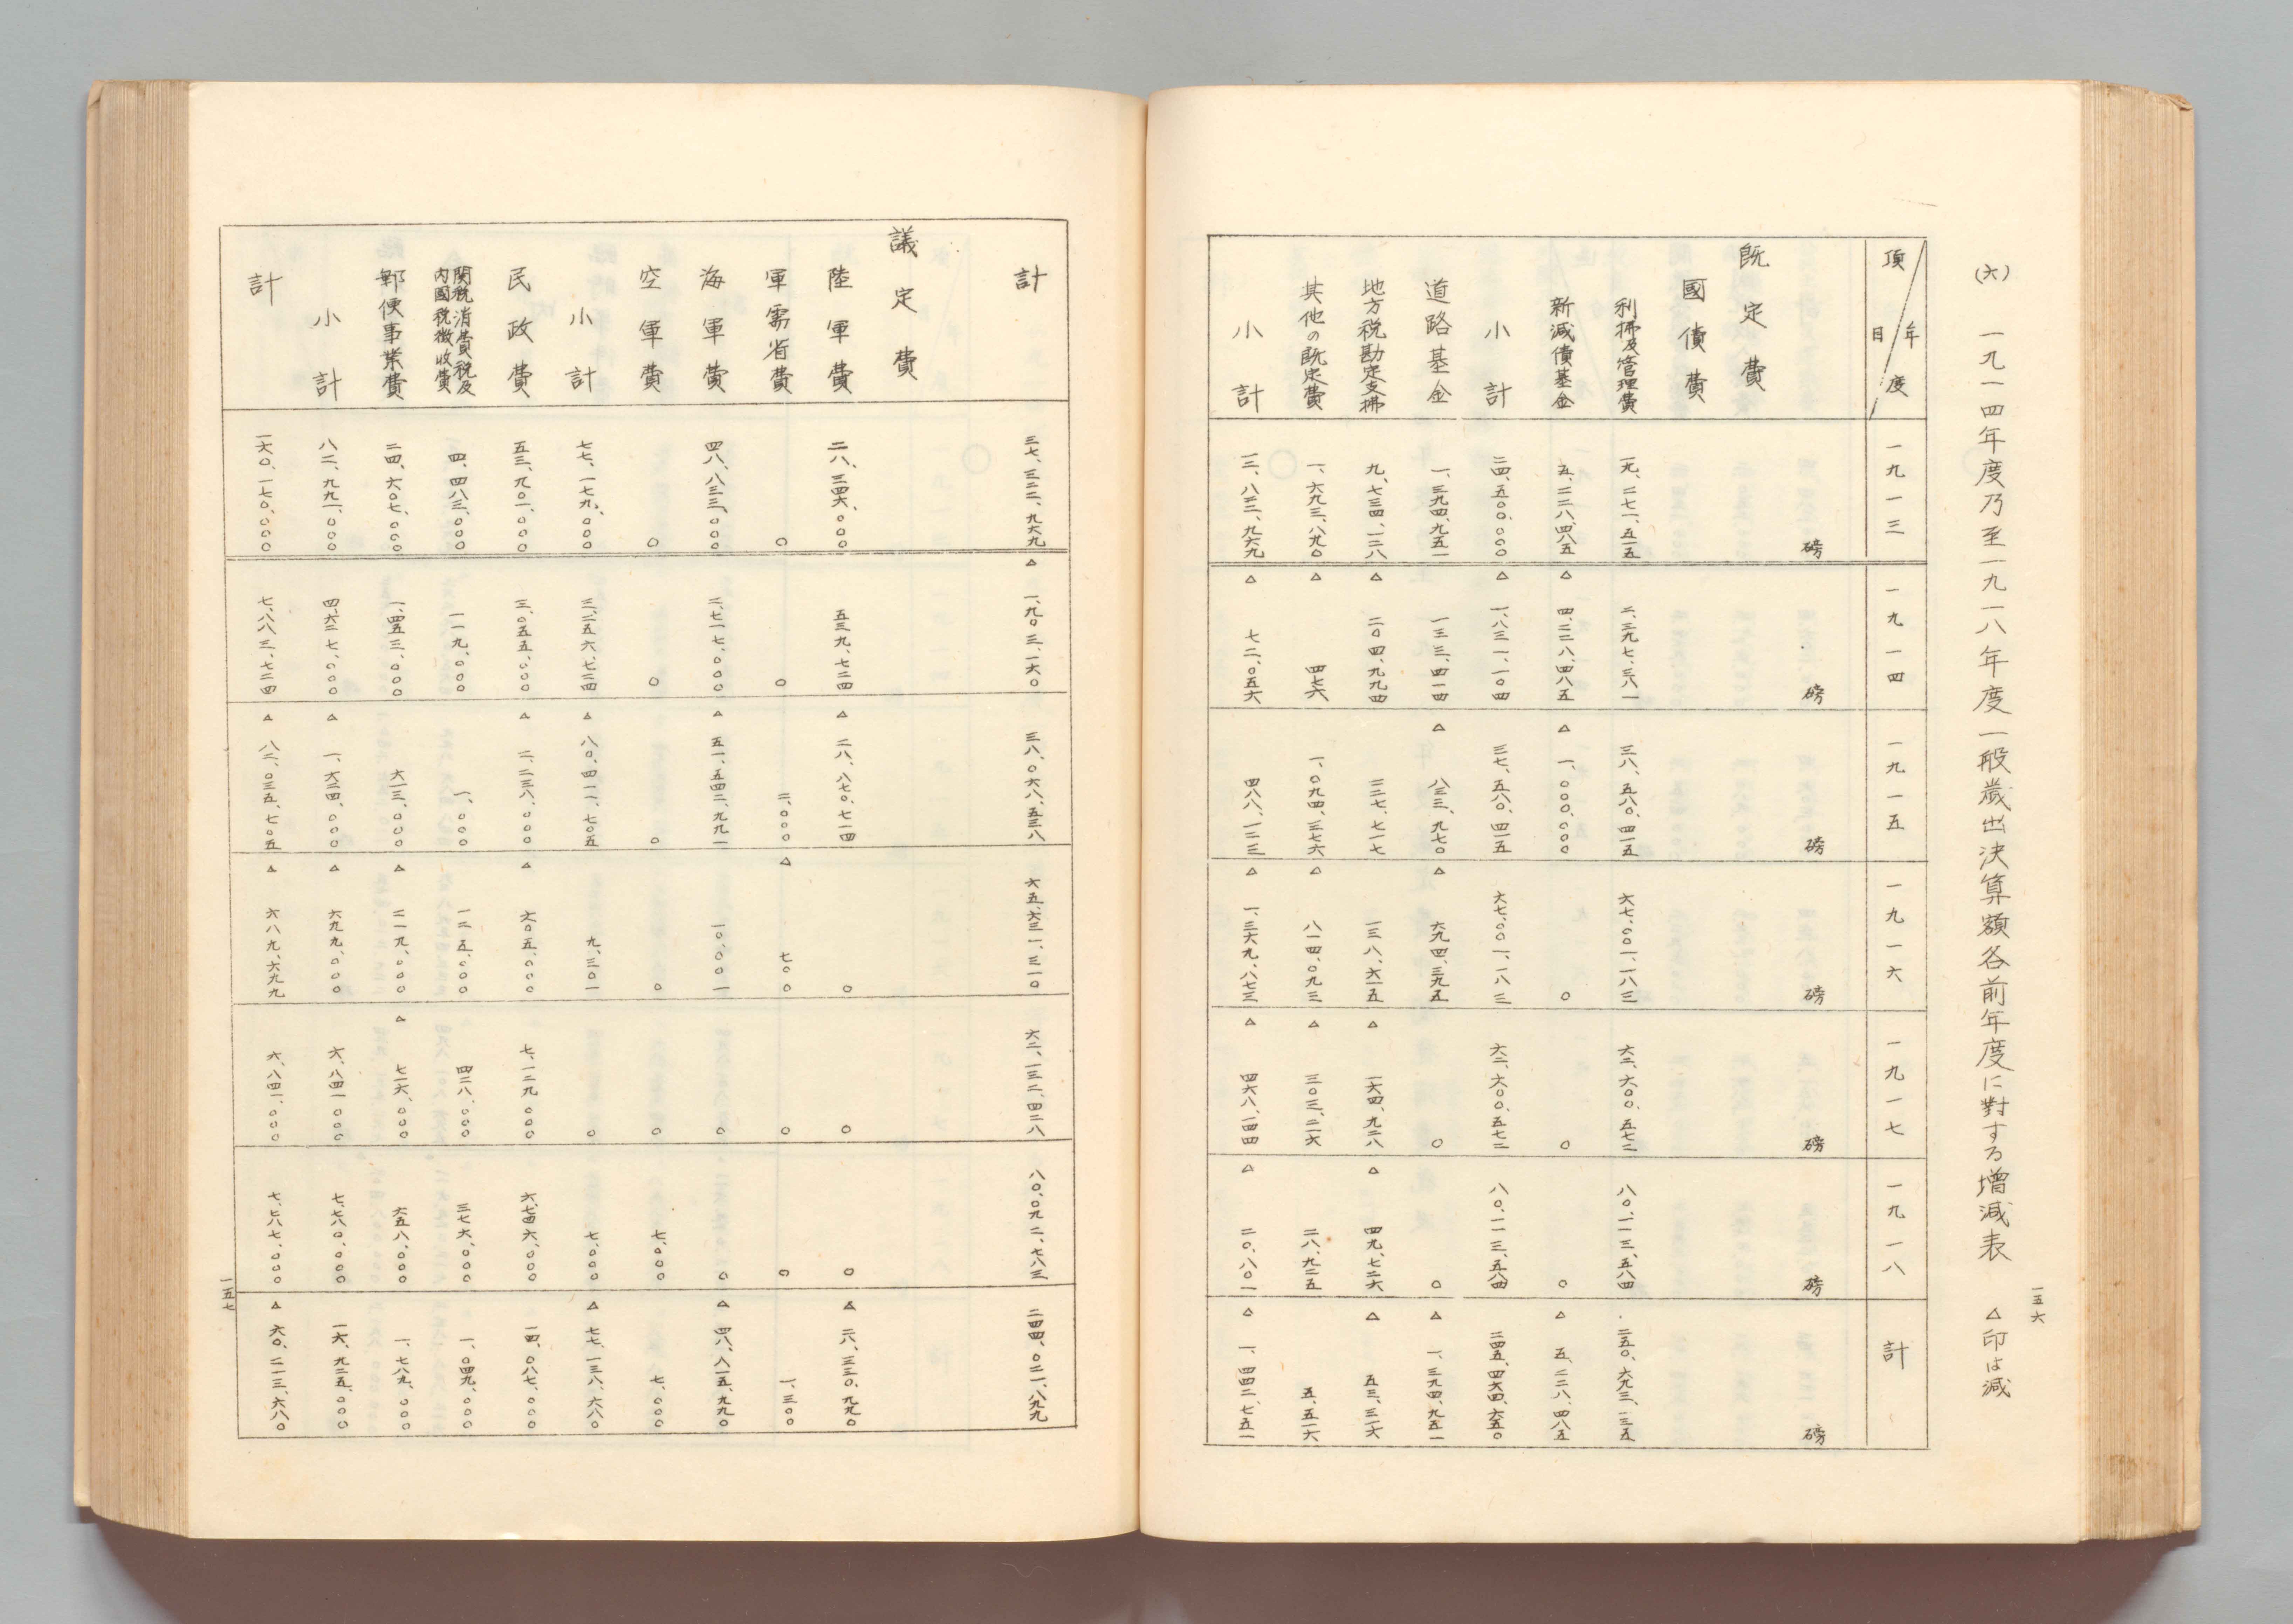 一五六
(六)　一九一四年度乃至一九一八年度一般歳出決算額各前年度に對する増減表　△印は減
項目／年度　一九一三　一九一四　一九一五　一九一六　一九一七　一九一八　計
磅　磅　磅　磅　磅　磅　磅
既定費
國債費
利拂及管理費　一九、二七一、五一五　二、三九七、三八一　三八、五八〇、四一五　六七、〇〇一、一八三　六二、六〇〇、五七二　八〇、一一三、五八四　二五〇、六九三、一三五
新減債基金　五、二二八、四八五　△四、二二八、四八五　△一、〇〇〇、〇〇〇　〇　〇　〇　△五、二二八、四八五
小計　二四、五〇〇、〇〇〇　△一、八三一、一〇四　三七、五八〇、四一五　六七、〇〇一、一八三　六二、六〇〇、五七二　八〇、一一三、五八四　二四五、四六四、六五〇
道路基金　一、三九四、九五一　一三三、四一四　△八三三、九七〇　△六九四、三九五　〇　〇　△一、三九四、九五一
地方税勘定支拂　九、七三四、一二八　△二〇四、九九四　二二七、七一七　一三八、六一五　△一六四、九二八　△四九、七二六　△五三、三一六
其他の既定費　一、六九三、八九〇　△四七六　一、〇九四、三七六　△八一四、〇九三　△三〇三、二一六　二八、九二五　五、五一六
小計　一二、八二二、九六九　△七二、〇五六　四八八、一二三　△一、三六九、八七三　△四六八、一四四　△二〇、八〇一　△一、四四二、七五一
計　三七、三二二、九六九　△一、九〇三、一六〇　三八、〇六八、五三八　六五、六三一、三一〇　六二、一三二、四二八　八〇、〇九二、七八三　二四四、〇二一、八九九
議定費
陸軍費　二八、三四六、〇〇〇　五三九、七二四　△二八、八七〇、七一四　〇　〇　〇　△二八、三三〇、九九〇
軍需省費　〇　〇　二、〇〇〇　△七〇〇　〇　〇　一、三〇〇
海軍費　四八、八三三、〇〇〇　二、七一七、〇〇〇　△五一、五四二、九九一　一〇、〇〇一　〇　〇　△四八、八一五、九九〇
空軍費　〇　〇　〇　〇　〇　七、〇〇〇　七、〇〇〇
小計　七七、一七九、〇〇〇　三、二五六、七二四　△八〇、四一一、七〇五　九、三〇一　〇　七、〇〇〇　△七七、一三八、六八〇
民政費　五三、九〇一、〇〇〇　三、〇五五、〇〇〇　△二、二三八、〇〇〇　△六〇五、〇〇〇　七、一二九、〇〇〇　六、七四六、〇〇〇　一四、〇八七、〇〇〇
関税消費税及内國税徴收費　四、四八三、〇〇〇　一一九、〇〇〇　一、〇〇〇　一二五、〇〇〇　四二八、〇〇〇　三七六、〇〇〇　一、〇四九、〇〇〇
郵便事業費　二四、六〇七、〇〇〇　一、四五三、〇〇〇　六一三、〇〇〇　△二一九、〇〇〇　△七一六、〇〇〇　六五八、〇〇〇　一、七八九、〇〇〇
小計　八二、九九一、〇〇〇　四、六二七、〇〇〇　△一、六二四、〇〇〇　△六九九、〇〇〇　六、八四一、〇〇〇　七、七八〇、〇〇〇　一六、九二五、〇〇〇
計　一六〇、一七〇、〇〇〇　七、八八三、七二四　△八二、〇三五、七〇五　△六八九、六九九　六、八四一、〇〇〇　七、七八七、〇〇〇　△六〇、二一三、六八〇
一五七